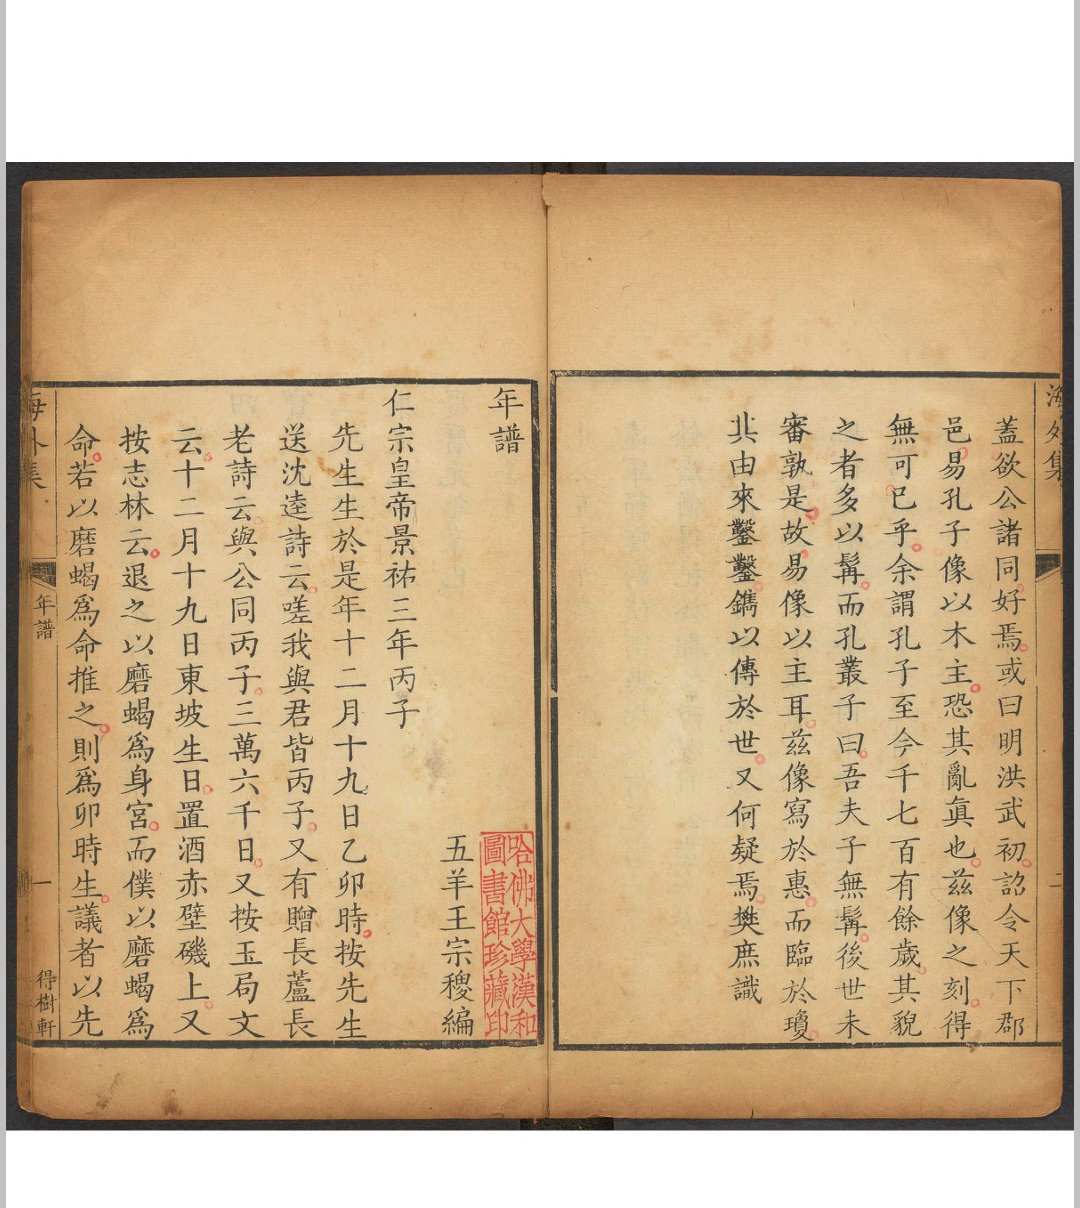 海外集
二
蓋欲公諸同好焉或曰明洪武初詔令天下郡
邑易孔子像以木主恐其亂眞也茲像之刻得
無可已乎余謂孔子至今千七百有餘歲其貌
之者多以髯而孔叢子曰吾夫子無髯後世未
審孰是故易像以主耳茲像寫於惠而臨於瓊
其由來鑿鑿鐫以傳於世又何疑焉樊庶識
年譜
哈佛大學漢和
圖書館珍藏印
五羊王宗稷編
仁宗皇帝景祐三年丙子
先生生於是年十二月十九日乙卯時按先生
送沈逵詩云嗟我與君皆丙子又有贈長蘆長
老詩云與公同丙子三萬六千日又按玉局文
云十二月十九日東坡生日置酒赤壁磯上又
按志林云退之以磨蝎爲身宮而僕以磨蝎爲
命若以磨蝎爲命推之則爲卯時生議者以先
海外集
年譜
一
得樹軒